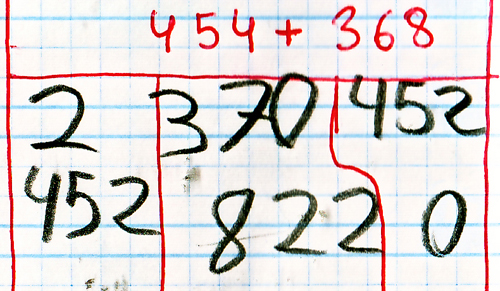 454 + 368
2 370 452
452 822 0